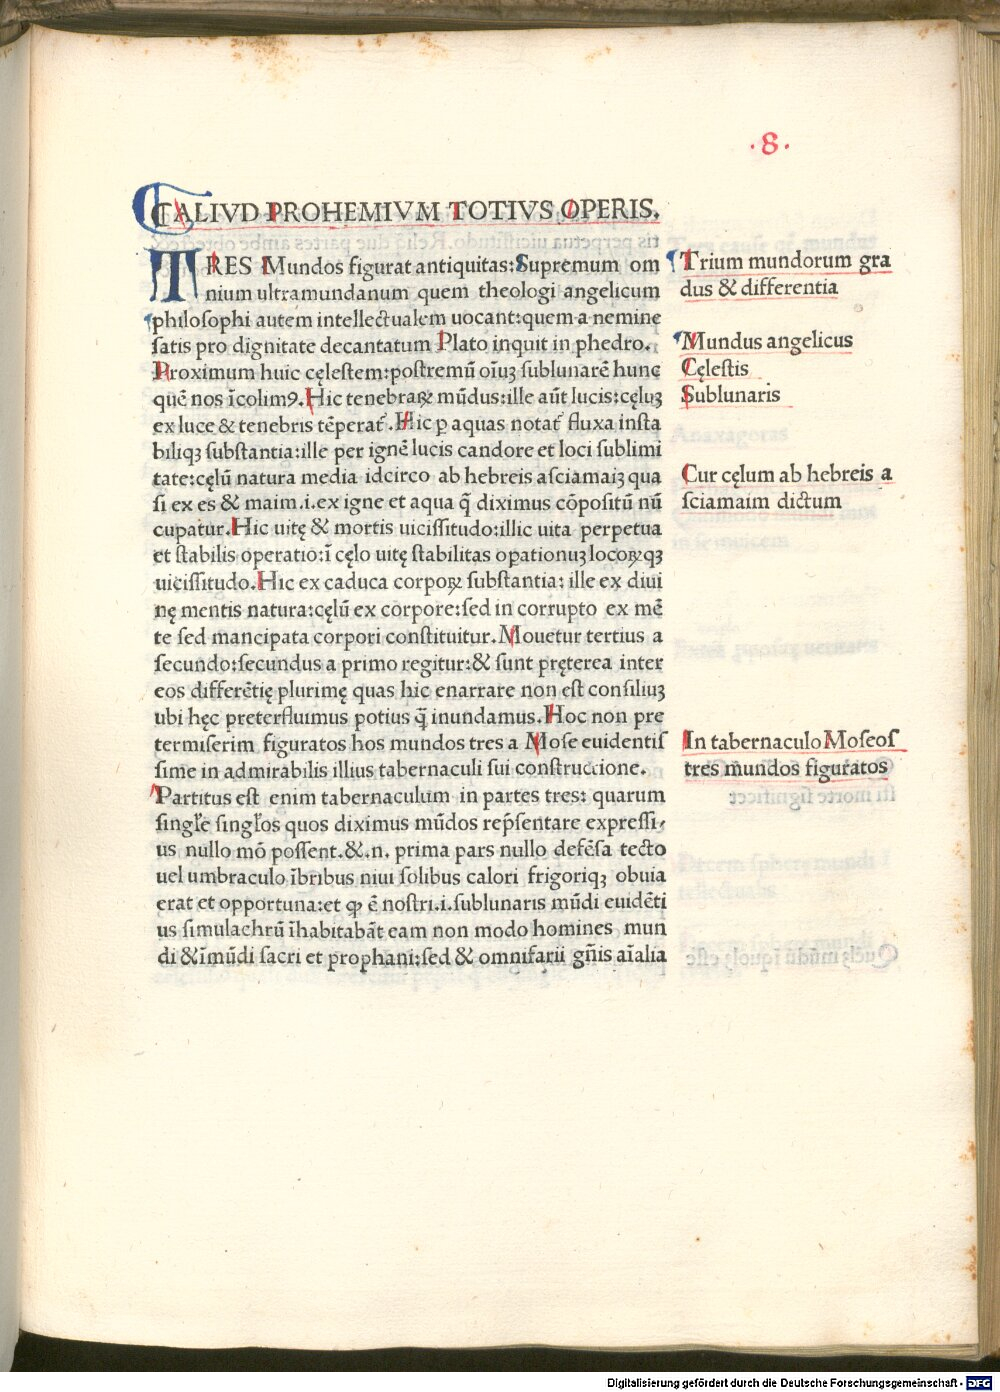 ·8·
ALIVD PROHEMIVM TOTIVS OPERIS.
TRES Mundos figurat antiquitas:Supremum om
nium ultramundanum quem theologi angelicum
philoſophi autem intellectualem uocant:quem a nemine
ſatis pro dignitate decantatum Plato inquit in phedro.
Proximum huic cęleſtem:poſtremū oīuꝫ ſublunarē hunc
quē nos īcolimꝰ. Hic tenebraꝝ mūdus:ille aūt lucis:cęluꝫ
ex luce & tenebris tēperat̄. Hic ꝑ aquas notat̄ fluxa inſta
biliqꝫ ſubſtantia:ille per ignē lucis candore et loci ſublimi
tate:cęlū natura media idcirco ab hebreis aſciamaiꝫ qua
ſi ex es & maim.i.ex igne et aqua q̄ diximus cōpoſitū nū
cupatur. Hic uitę & mortis uiciſſitudo:illic uita perpetua
et ſtabilis operatio:ī cęlo uitę ſtabilitas oꝑationuꝫ locoꝝqꝫ
uiciſſitudo. Hic ex caduca corpoꝝ ſubſtantia: ille ex diui
nę mentis natura:cęlū ex corpore:ſed in corrupto ex mē
te ſed mancipata corpori conſtituitur. Mouetur tertius a
ſecundo:ſecundus a primo regitur:& ſunt pręterea inter
eos differētię plurimę quas hic enarrare non eſt conſiliuꝫ
ubi hęc preterfluimus potius q̄ inundamus. Hoc non pre
termiſerim figuratos hos mundos tres a Moſe euidentiſ
ſime in admirabilis illius tabernaculi ſui conſtructione.
Partitus eſt enim tabernaculum in partes tres: quarum
ſingl̄e ſingl̄os quos diximus mūdos rep̄ſentare expreſſi,
us nullo mō poſſent.&.n. prima pars nullo defēſa tecto
uel umbraculo ībribus niui ſolibus calori frigoriqꝫ obuia
erat et opportuna:et ꝙ ē noſtri.i.ſublunaris mūdi euidēti
us ſimulachrū īhabitabāt eam non modo homines mun
di &īmūdi ſacri et prophani:ſed & omnifarii gn̄is aīalia
Trium mundorum gra
dus & differentia
Mundus angelicus
Cęleſtis
Sublunaris
Cur cęlum ab hebreis a
ſciamaim dictum
In tabernaculo Moſeoſ
tres mundos figuratos
Digitalisierung gefördert durch die Deutsche Forschungsgemeinschaft - DFG